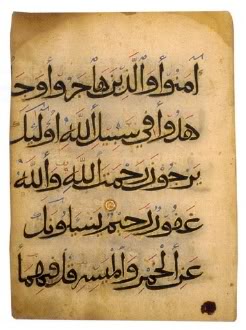 امنوا والذين هاجروا وجا
هدوا في سبيل الله اوليك
يرجون رحمت الله والله
غفور رحيم يسلونك
عن الخمر والميسر قل فيهما